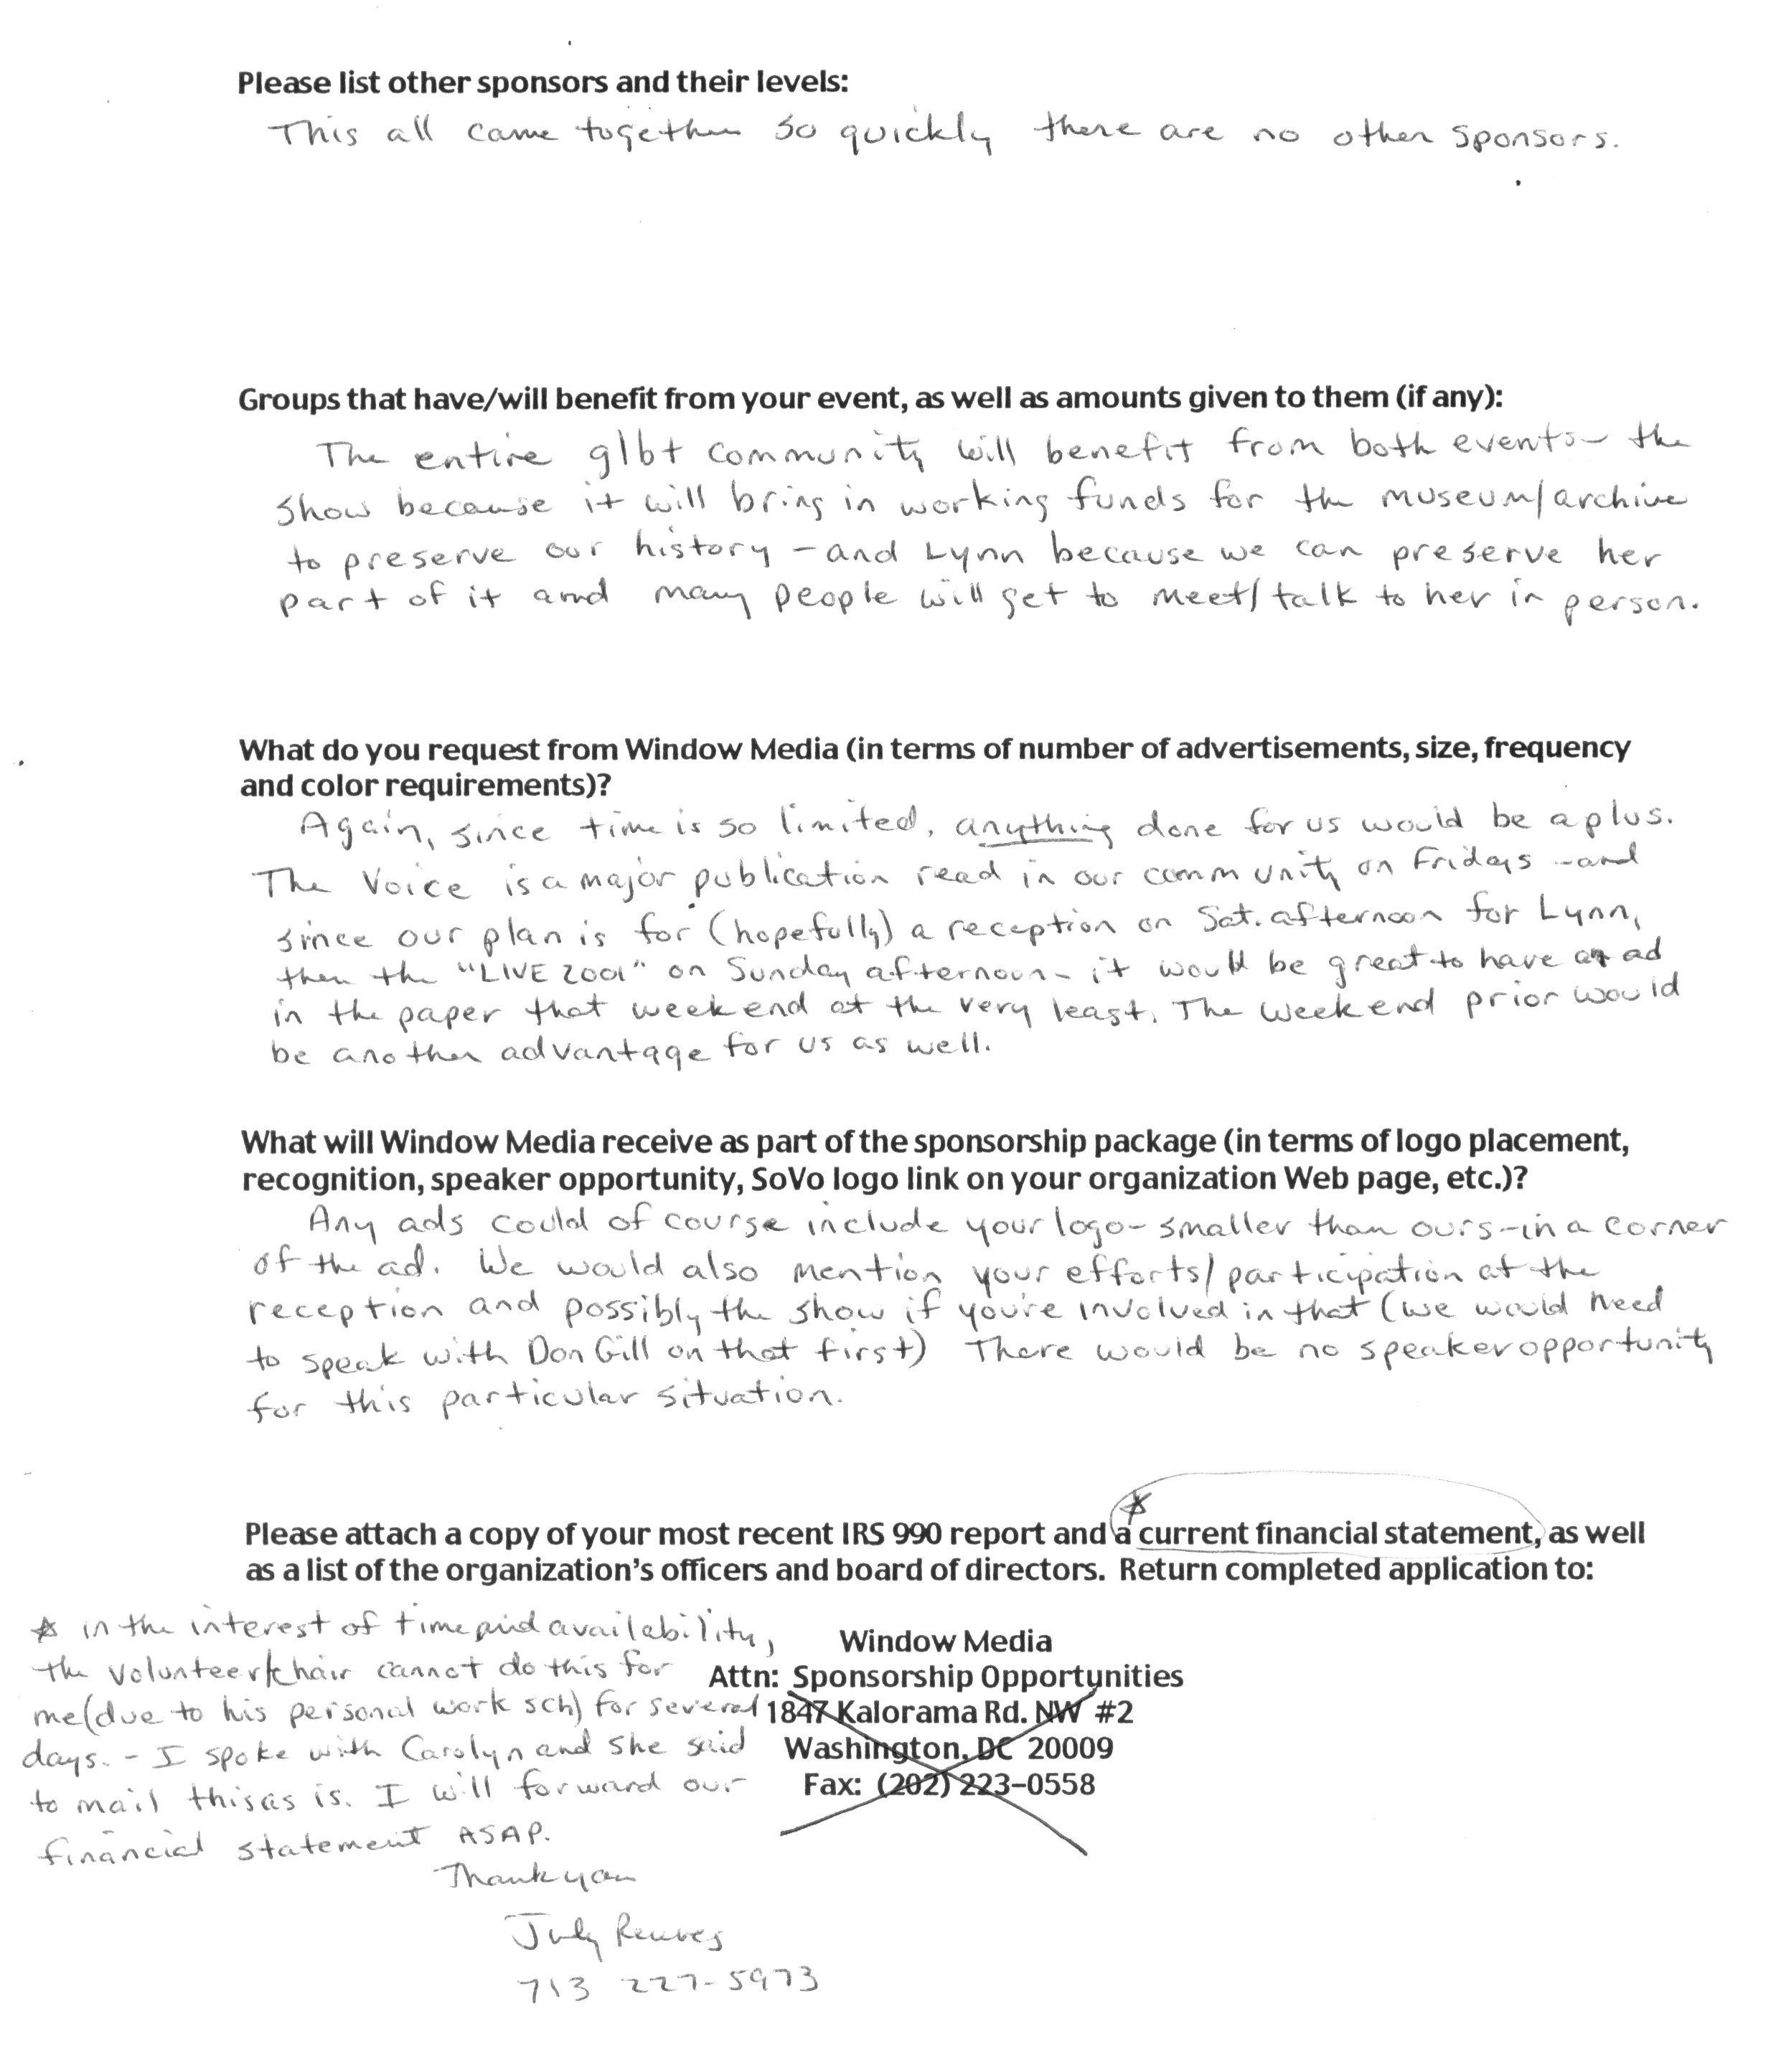 Please list other sponsors and their levels:
This all came together so quickly there are no other sponsors.
Groups that have/will benefit from your event, as well as amounts given to them (if any):
The entire glbt community will benefit from both events - the
show because it will bring in working funds for the museum/archive
to preserve our history - and Lynn because we can preserve her
part of it and many people will get to meet/talk to her in person.
What do you request from Window Media (in terms of number of advertisements, size, frequency
and color requirements)?
Again, since time is so limited, anything done for us would be a plus.
The Voice is a major publication read in our community on Fridays - and
since our plan is for (hopefully) a reception on Sat. afternoon for Lynn,
then the "LIVE 2001" on Sunday afternoon - it would be great to have an ad
in the paper that weekend at the very least. The weekend prior would
be another advantage for us as well.
What will Window Media receive as part of the sponsorship package (in terms of logo placement,
recognition, speaker opportunity, SoVo logo link on your organization Web page, etc.)?
Any ads could of course include your logo - smaller than ours - in a corner
of the ad. We would also mention your efforts/participation at the
reception and possibly the show if you're involved in that (we would need
to speak with Don Gill on that first) There would be no speaker opportunity
for this particular situation.
Please attach a copy of your most recent IRS 990 report and a current financial statement, as well
as a list of the organization's officers and board of directors. Return completed application to:
in the interest of time and availability,
the volunteer/chair cannot do this for
me (due to his personal work sch) for several
days. - I spoke with Carolyn and she said
to mail this as is. I will forward our
financial statement ASAP.
Thank you
Judy Reeves
713 227-5973
Window Media
Attn: Sponsorship Opportunities
1847 Kalorama Rd. NW #2
Washington, DC 20009
Fax: (202) 223-0558